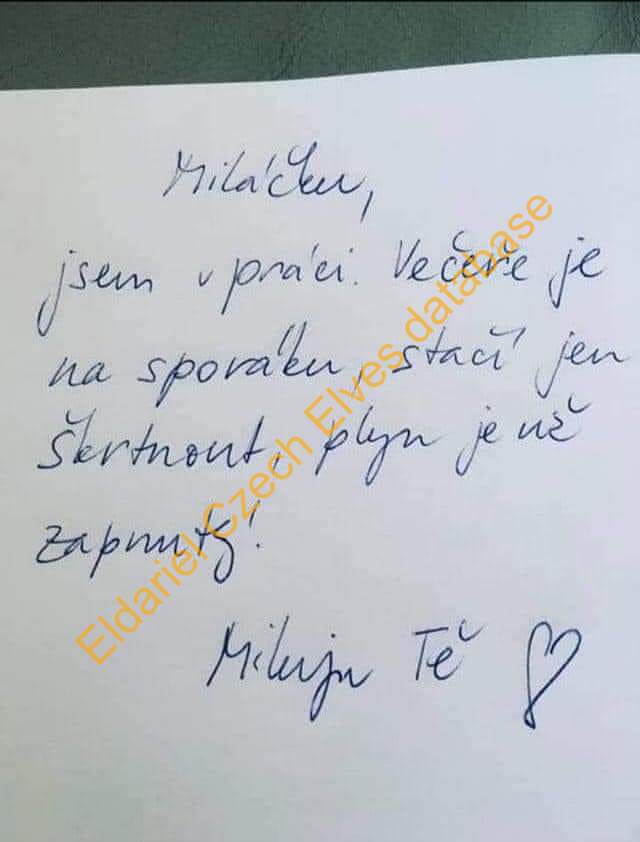 Miláčku,
jsem v práci. Večeře je
na sporáku, stačí jen
škrtnout, plyn je už
zapnutý!
Miluju Tě
Eldariel Czech Elves database